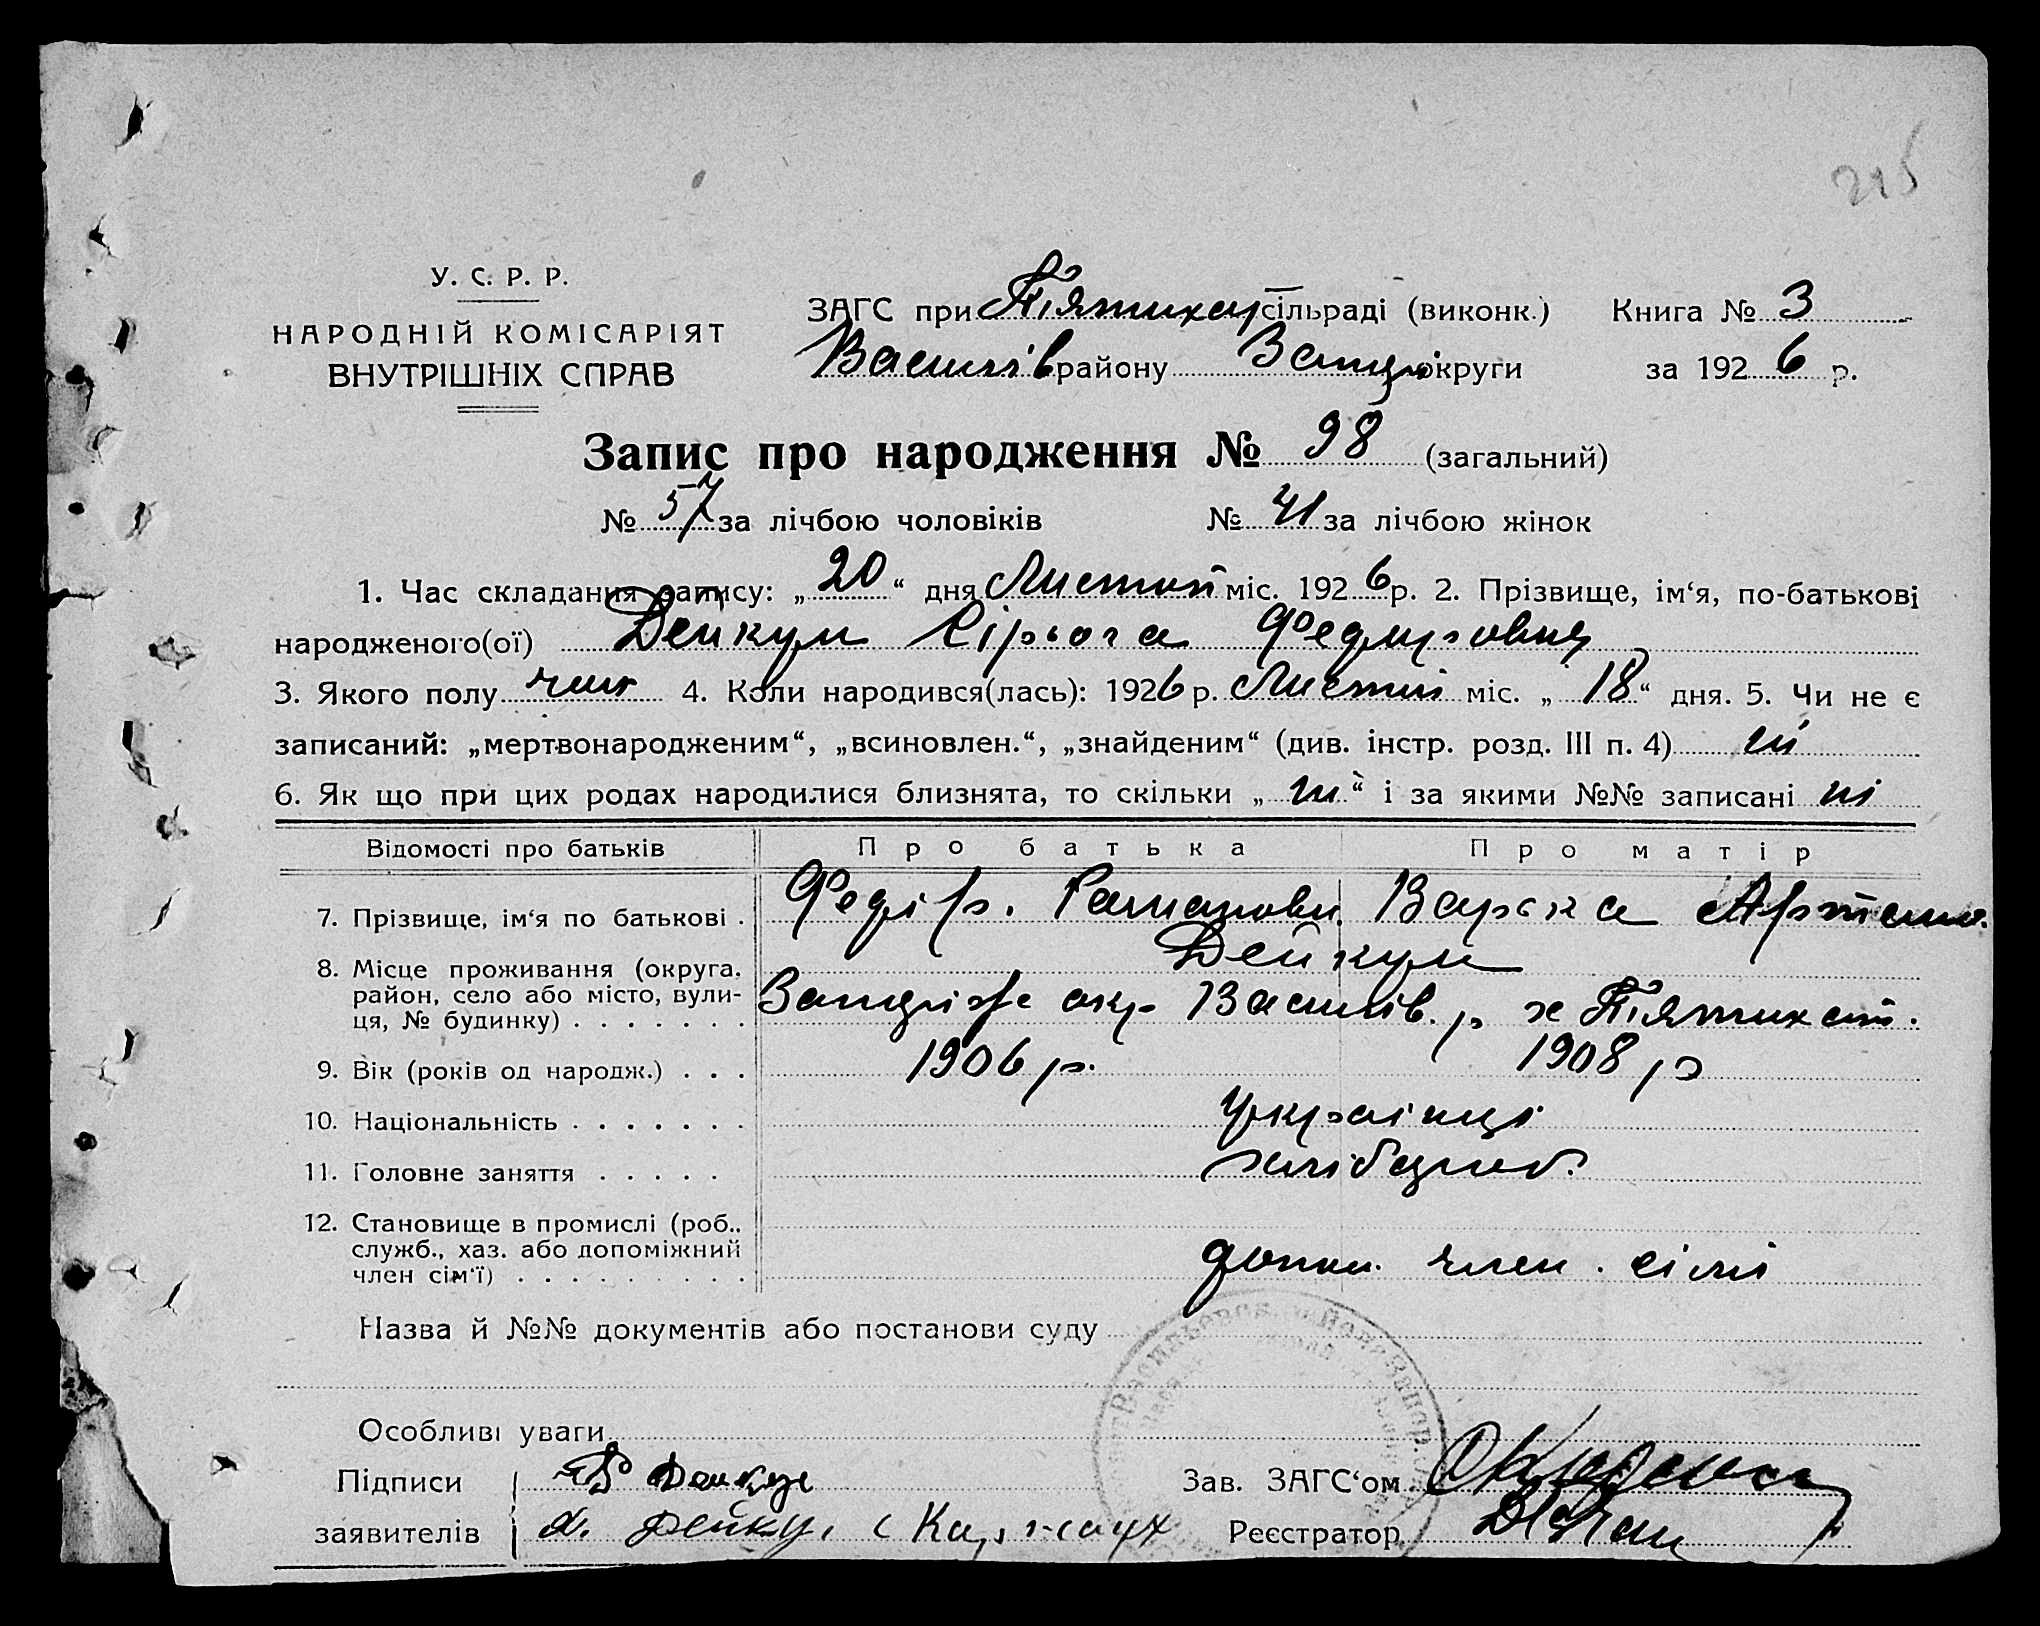 215
У. С. Р. Р.
НАРОДНІЙ КОМІСАРІЯТ
ВНУТРІШНІХ СПРАВ
ЗАГС при Пятихат сільраді (виконк.) Книга № 3
Василів району Запор округи за 1926 р.
Запис про народження № 98 (загальний)
№ 57 за лічбою чоловіків № 41 за лічбою жінок
1. Час складання запису: „20“ дня Листоп міс. 1926 р. 2. Прізвище, ім‘я, по-батькові
народженого(ої) Дейкун Сірьога Федоровиц
3. Якого полу чол 4. Коли народився(лась): 1926 р. Листоп міс. „18“ дня. 5. Чи не є
записаний: „мертвонародженим“, „всиновлен.“, „знайденим“ (див. інстр. розд. III п. 4) ні
6. Як що при цих родах народилися близнята, то скільки „ні“ і за якими №№ записані ні
Відомості про батьків Про батька Про матір
7. Прізвище, ім‘я по батькові . Федір. Варька Артемо.
Дейкун
8. Місце проживання (округа, район, село або місто, вули-
ця, № будинку) . . . . . . . Запоріж окр Василів. р х Пятихат.
9. Вік (років од народж.) . . . 1906 р. 1908 р
10. Національність . . . . . . . українці
11. Головне заняття . . . . . хлібороб.
12. Становище в промислі (роб.,
служб., хаз. або допоміжний
член сім‘ї) . . . . . . . . . . допом. член. сімі
Назва й №№ документів або постанови суду
Особливі уваги
Підписи Дейкун Зав. ЗАГС‘ом
заявителів Дейкун Реєстратор